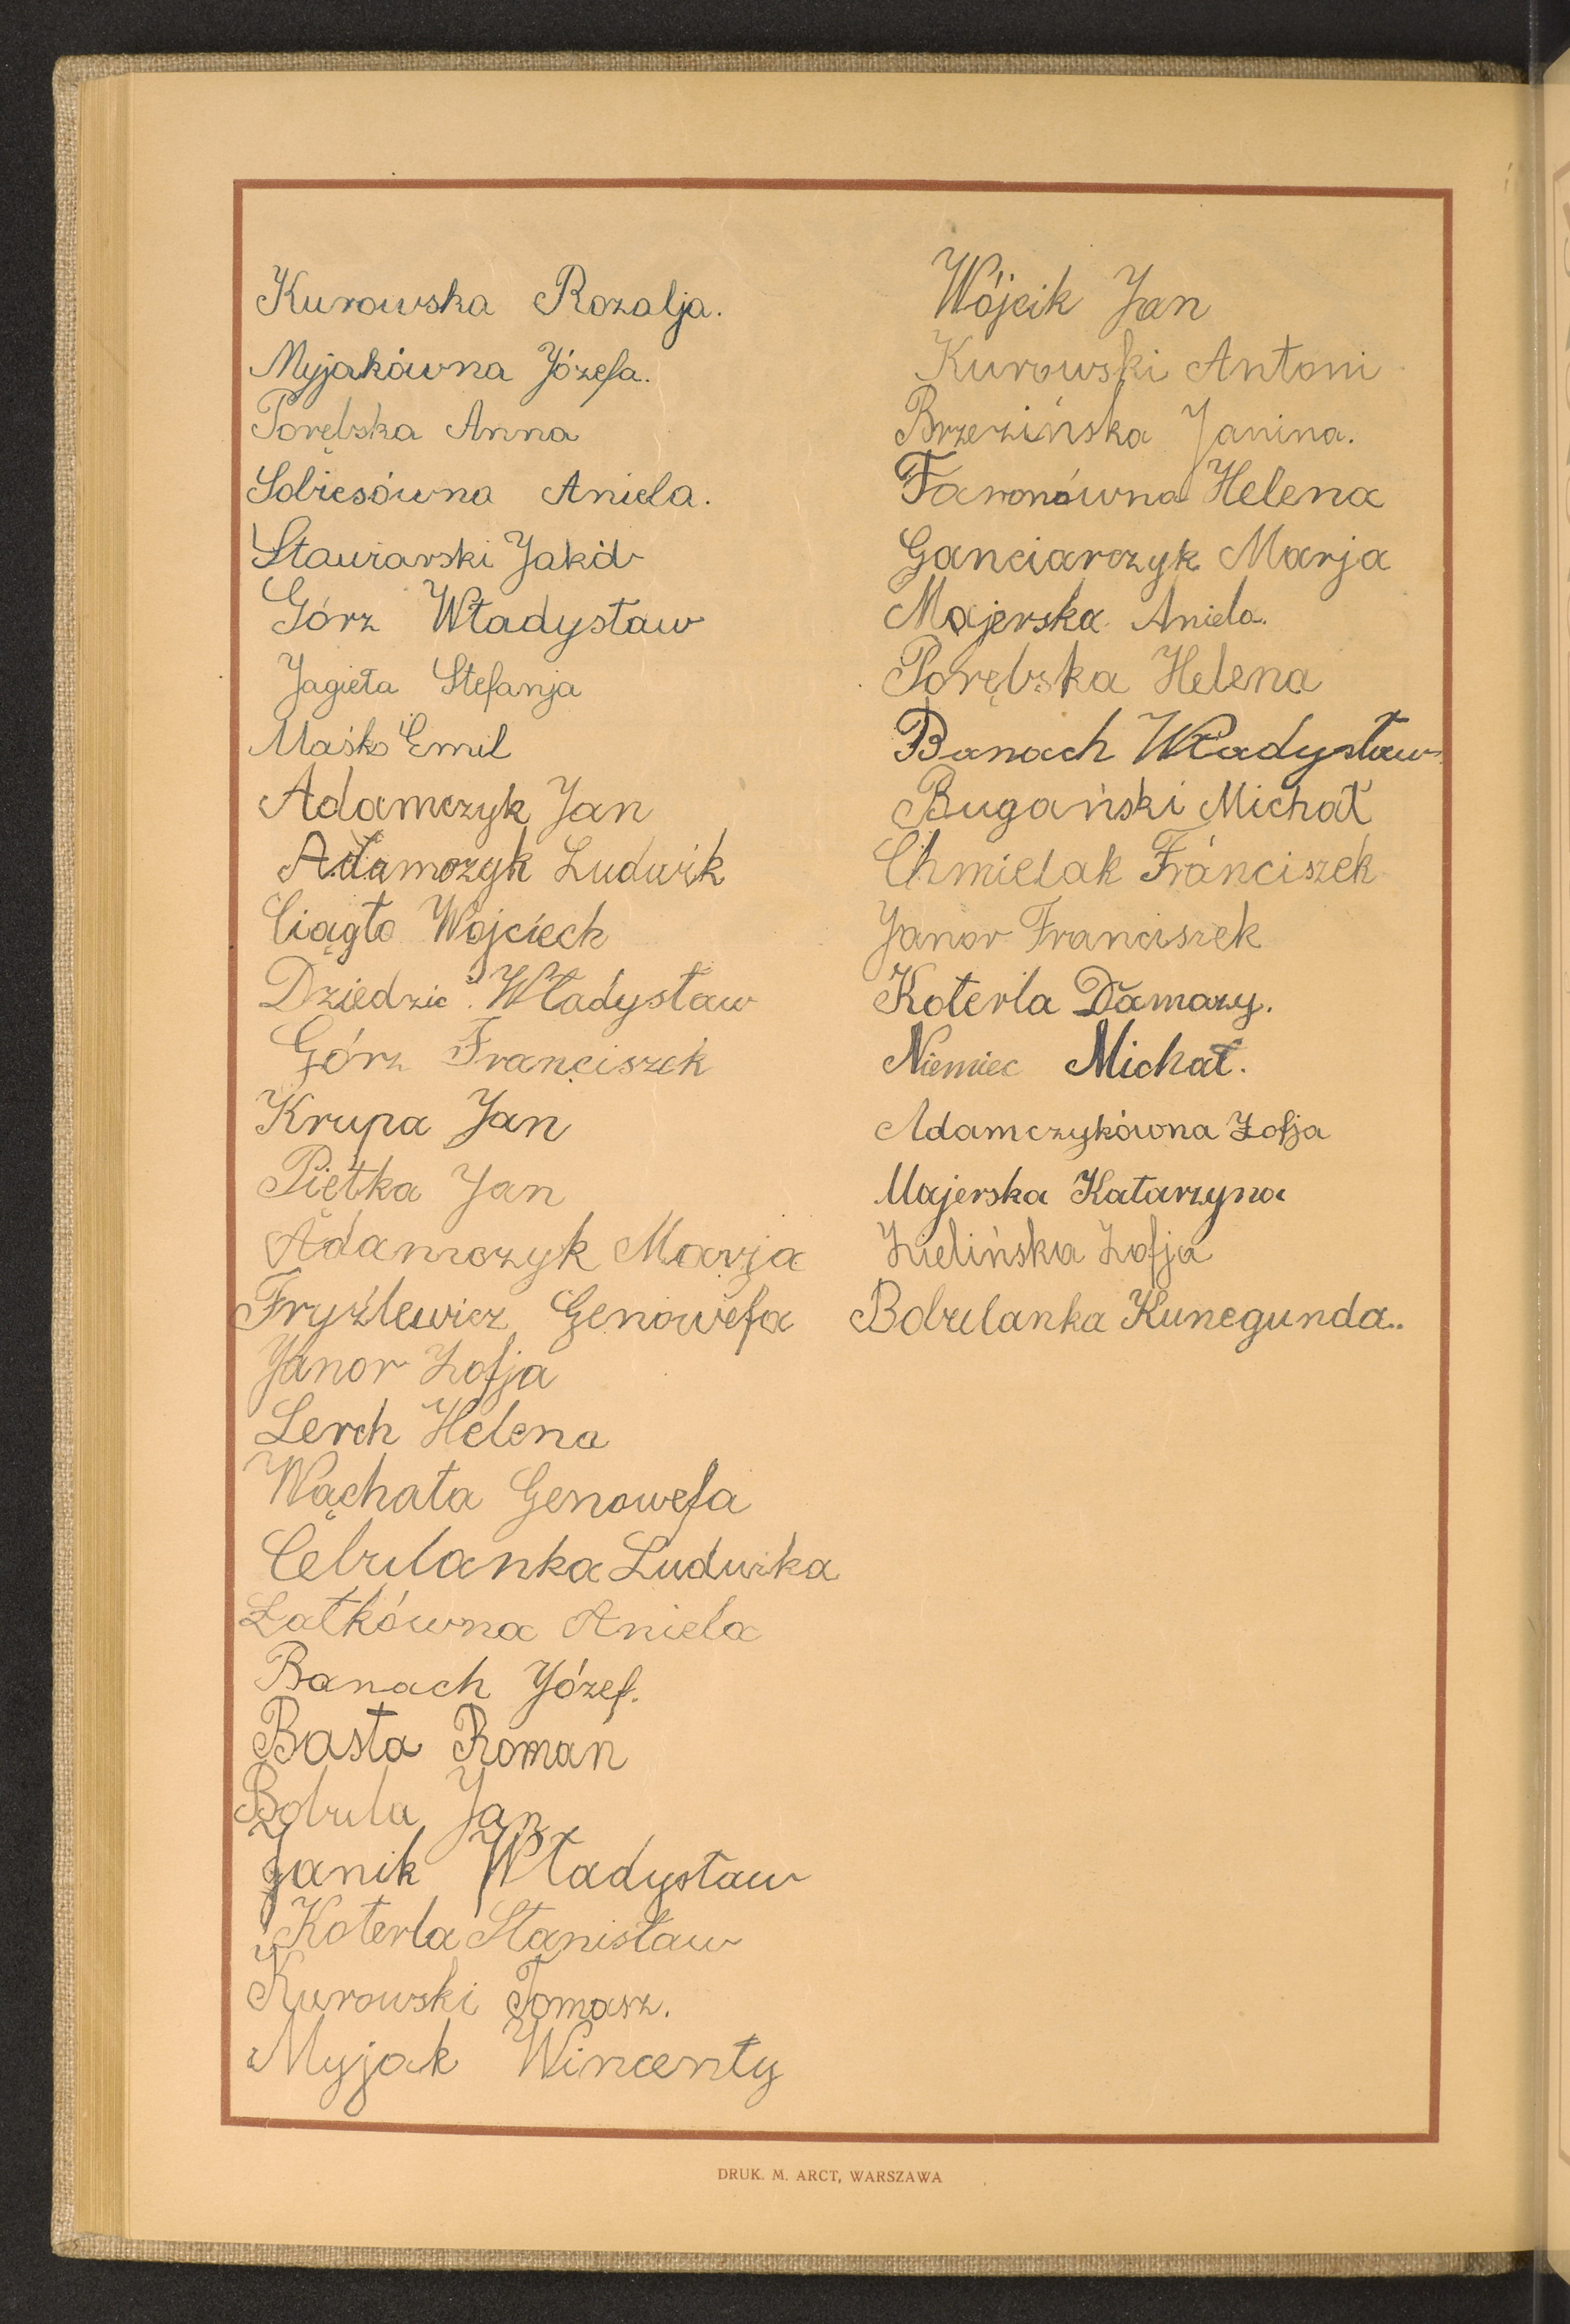 Kurowska Rozalja.
Myjakówna Józefa.
Porębska Anna
Sobiesówna Aniela.
Stawiarski Jakób
Górz Władysław
Jagieła Stefanja
Maśko Emil
Adamczyk Jan
Adamczyk Ludwik
Ciągło Wojciech
Dziedzic Władysław
Górz Franciszek
Krupa Jan
Piętka Jan
Adamczyk Marja
Fryźlewicz Genowefa
Janor Zofja
Lerch Helena
Wąchała Genowefa
Cebulanka Ludwika
Łatkówna Aniela
Banach Józef.
Basta Roman
Bobula Jan
Janik Władysław
Koterla Stanisław
Kurowski Tomasz.
Myjak Wincenty
Wójcik Jan
Kurowski Antoni
Brzezińska Janina.
Faronówna Helena
Ganciarczyk Marja
Majerska Aniela.
Porębska Helena
Banach Władysław
Bugański Michał
Chmielak Franciszek
Janor Franciszek
Koterla Damazy.
Niemiec Michał.
Adamczykówna Zofja
Majerska Katarzyna
Zielińska Zofja
Bobulanka Kunegunda..
DRUK. M. ARCT, WARSZAWA